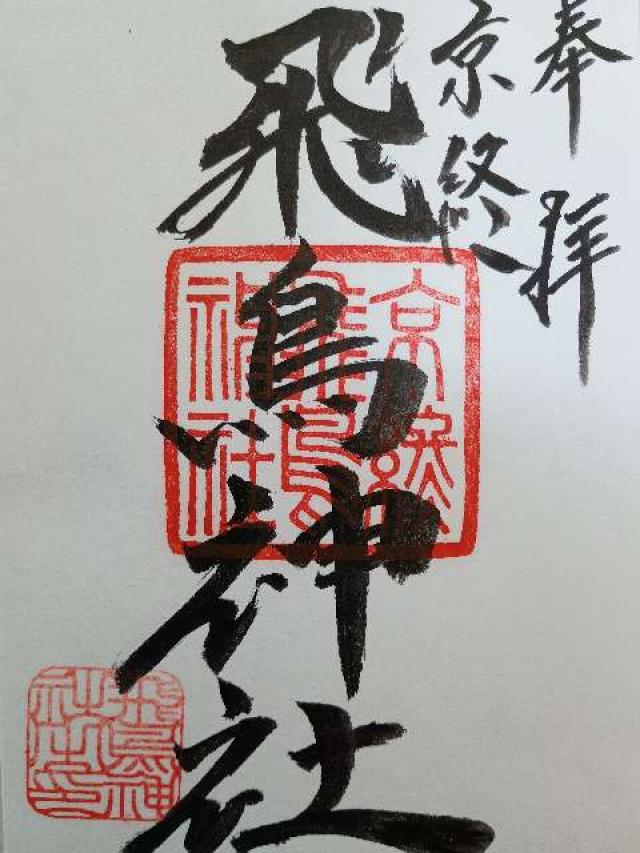 奉拝
京終
飛鳥神社
京終飛鳥神社
飛鳥神社之印